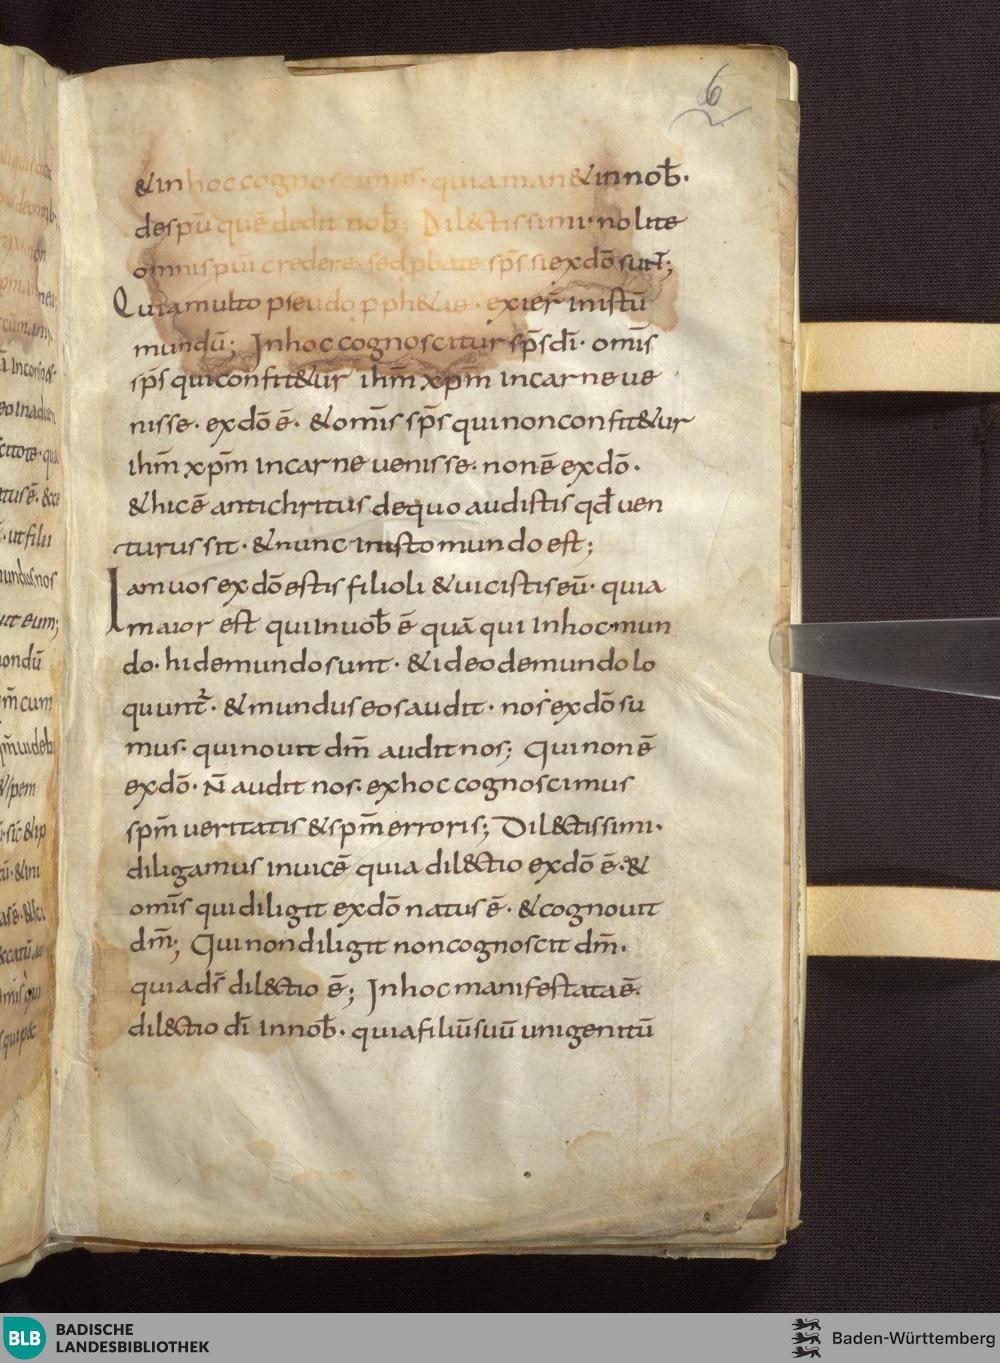 6
& in hoc cognoscimus· quia man& in nob̄·
de spū quē dedit nob̄; Dil&tissimi· nolite
omni spui credere· sed pbate sp̄s si ex dō sunt;
Quia multo pseudo pph&ae· exier̄ in istū
mundū; In hoc cognoscitur sp̄s dī· om̄is
sp̄s qui confit&ur ih̄m xp̄m in carne ue
nisse· ex dō ē· & om̄is sp̄s qui non confit&ur
ih̄m xp̄m in carne uenisse· non ē ex dō·
& hic ē antichritus de quo audistis qd̄ uen
turus sit· & nunc in isto mundo est;
Iam uos ex dō estis filioli & uicistis eū· quia
maior est qui in uob̄ ē quā qui in hoc mun
do· hi de mundo sunt· & ideo de mundo lo
quunt̄· & mundus eos audit· nos ex dō su
mus· qui nouit dm̄ audit nos; Qui non ē
ex dō· N̄ audit nos· ex hoc cognoscimus
spm̄ ueritatis & spm̄ erroris; Dil&tissimi·
diligamus inuicē quia dil&tio ex dō ē· &
om̄is qui diligit ex dō natus ē· & cognouit
dm̄; Qui non diligit non cognoscit dm̄·
quia ds̄ dil&tio ē; In hoc manifestata ē·
dil&tio dī in nob̄· quia filiū suū unigenitū
BLB BADISCHE
LANDESBIBLIOTHEK
Baden-Württemberg